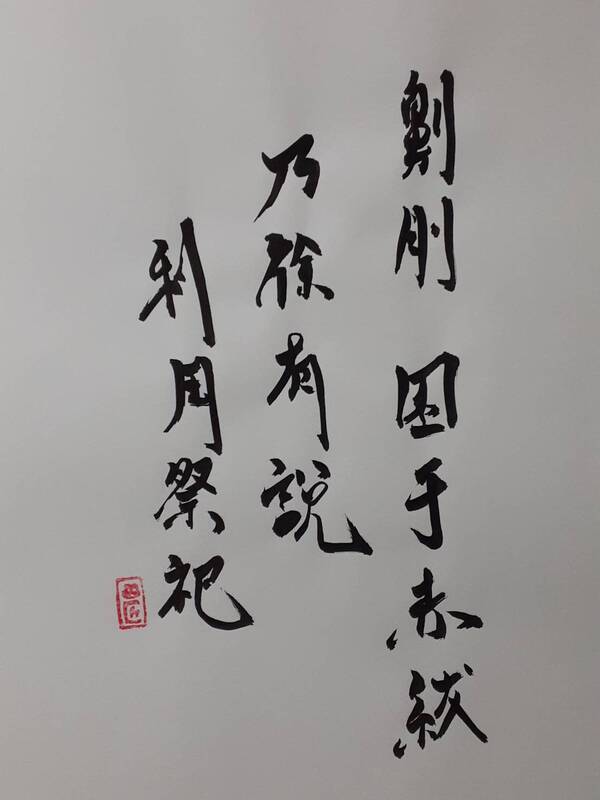 劓刖 困于赤紱
乃徐有説
利用祭祀